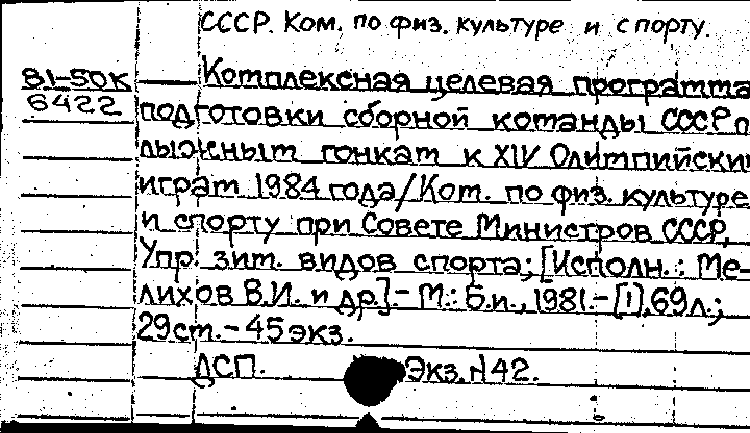 СССР. Ком. по физ. культуре и спорту.
81-50К Комплексная целевая программа
6422 подготовки сборной команды СССР п
лыжным гонкам к XIV Олимпийским
играм 1984 года/Ком. по физ. культуре
и спорту при Совете Министров СССР,
Упр. зим. видов спорта; [Исполн.: Ме-
лихов В.И. и др.].- М.: Б.и., 1981.- [1], 69 л.;
29 см.- 45 экз.
ДСП. Экз. N 42.